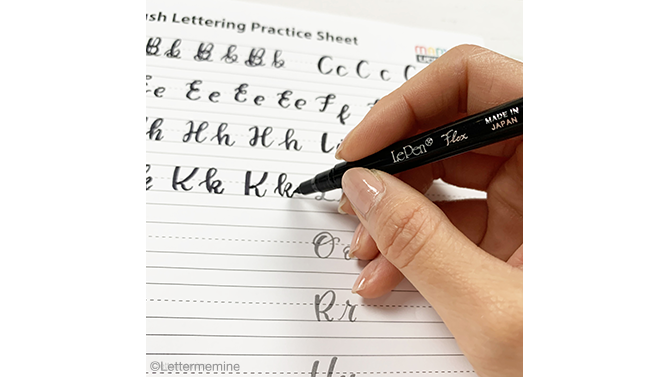 ush Lettering Practice Sheet
Bb Bb Bb Cc Cc C
e Ee Ee Ee Ff
h Hh Hh
k Kk Kk
LePen Flex MADE IN JAPAN
O
Rr
©Lettermemine